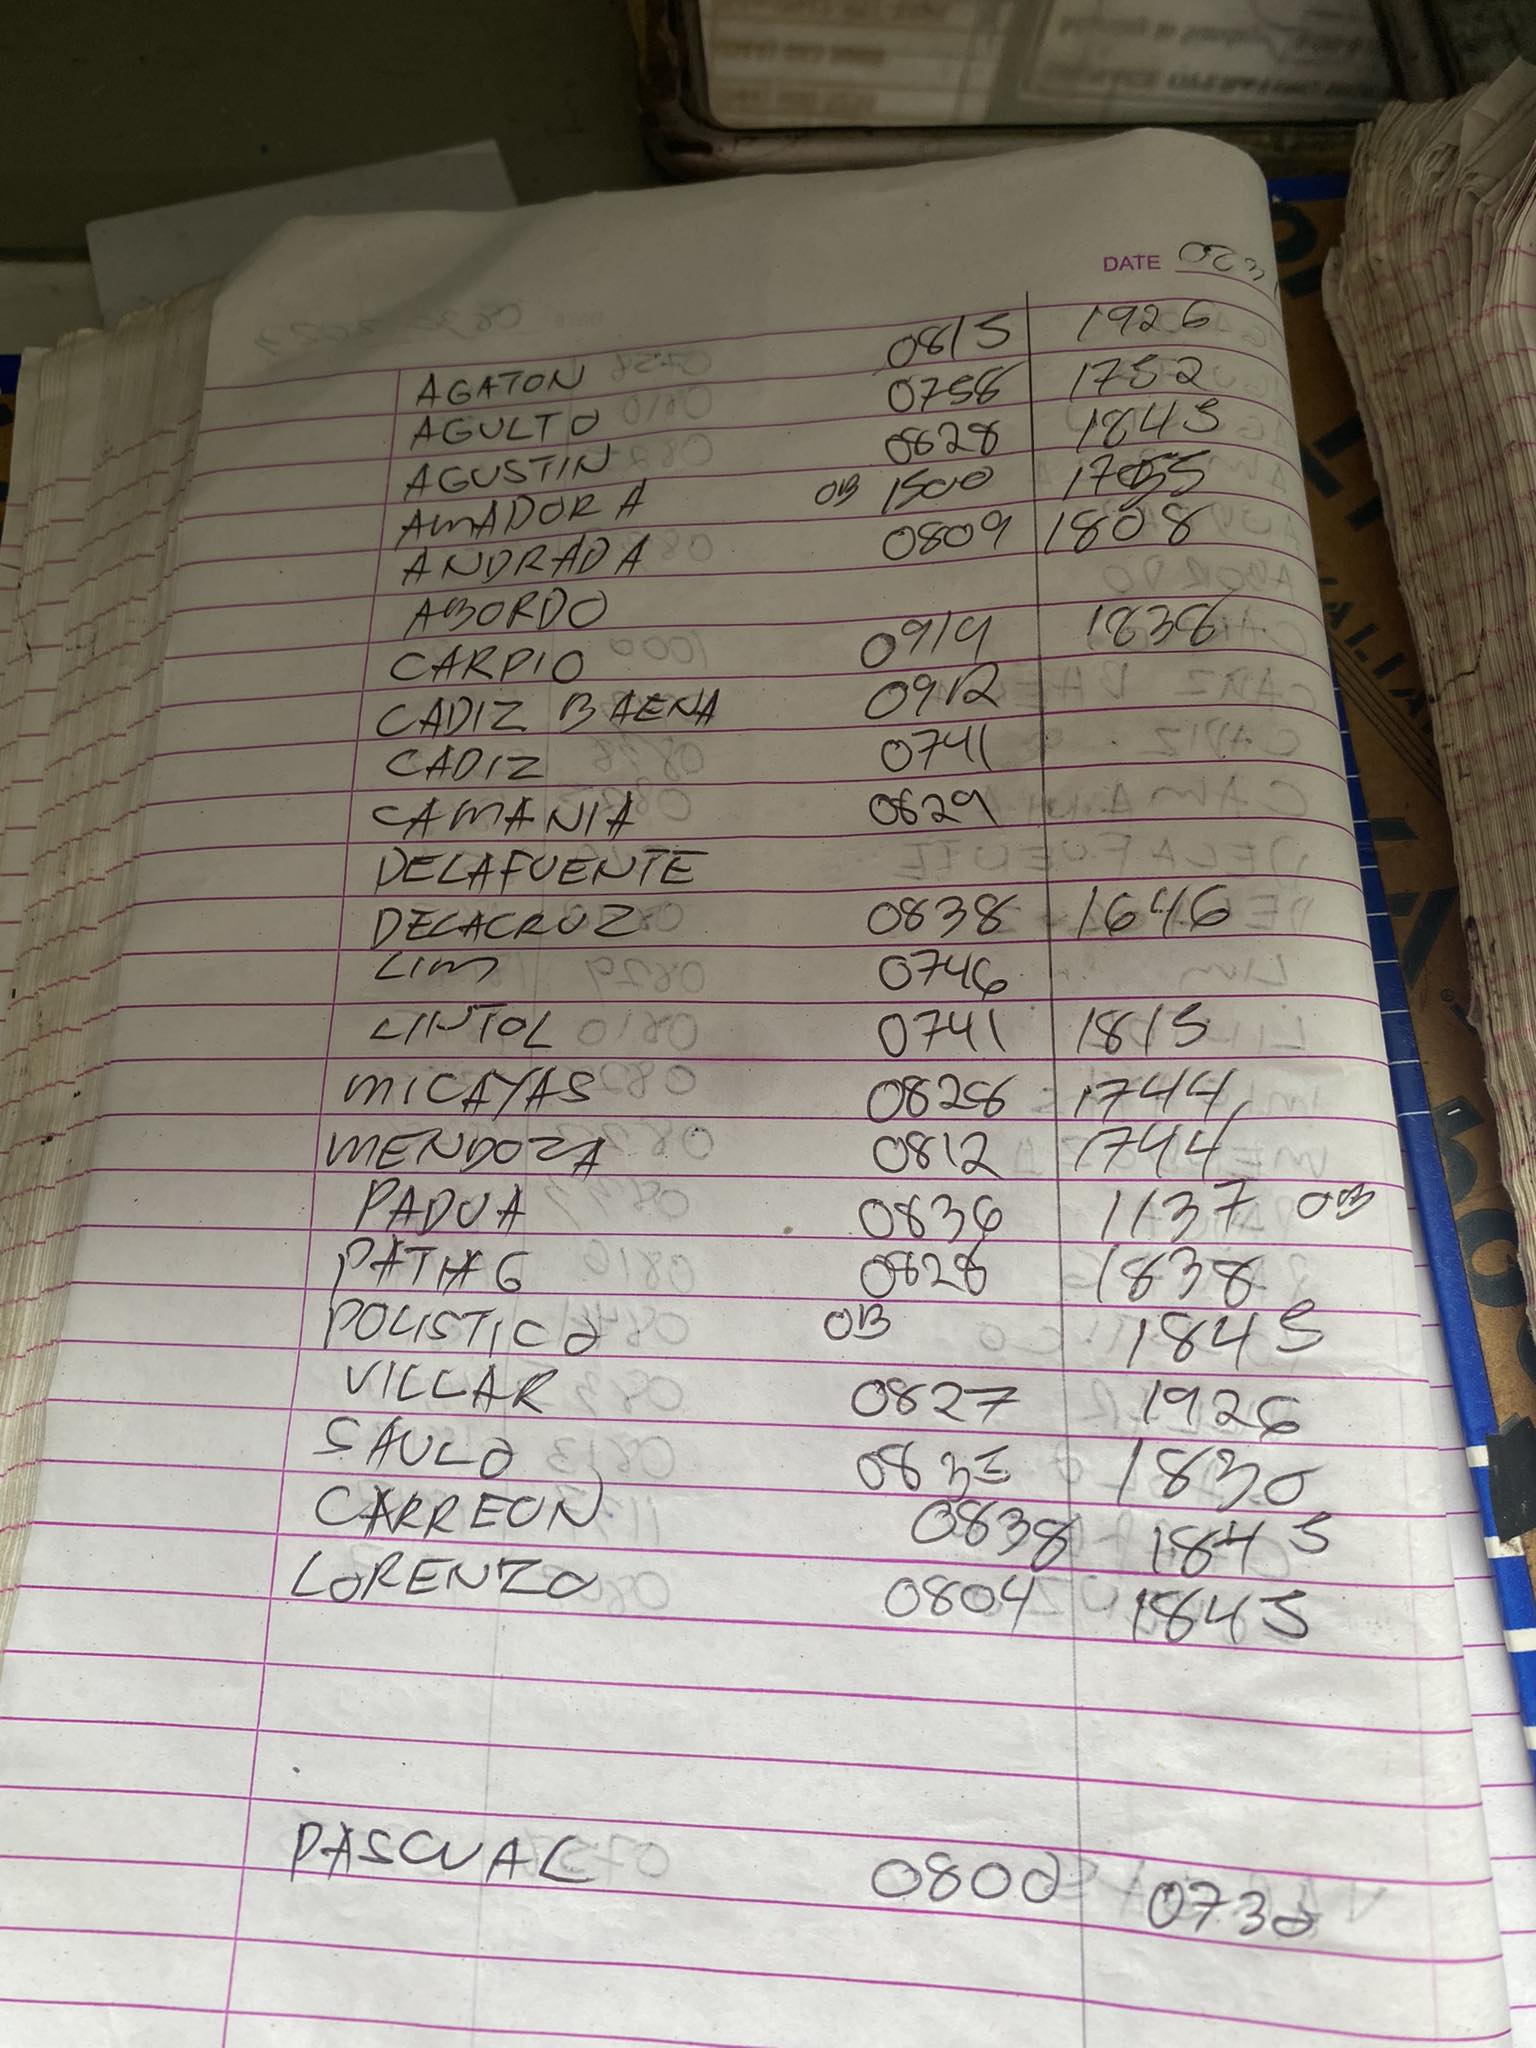 DATE
AGATON 0815 1926
AGULTO 0758 1752
AGUSTIN 0828 1845
AMADORA OB 1500
ANDRADA 0809 1808
ABORDO
CARPIO 0919 1838
CADIZ BAENA 0912
CADIZ 0741
CAMANIA 0829
DELAFUENTE
DELACRUZ 0838 1646
LIM 0746
LINTOL 0741 1815
MICAYAS 0828 1744
MENDOZA 0812 1744
PADUA 0836 1137 OB
0828 1838
POLISTICO OB 1845
VILLAR 0827 1926
SAULO 0835 1830
CARREON 0838 1845
LORENZO 0804 1845
PASCUAL 0800 0730